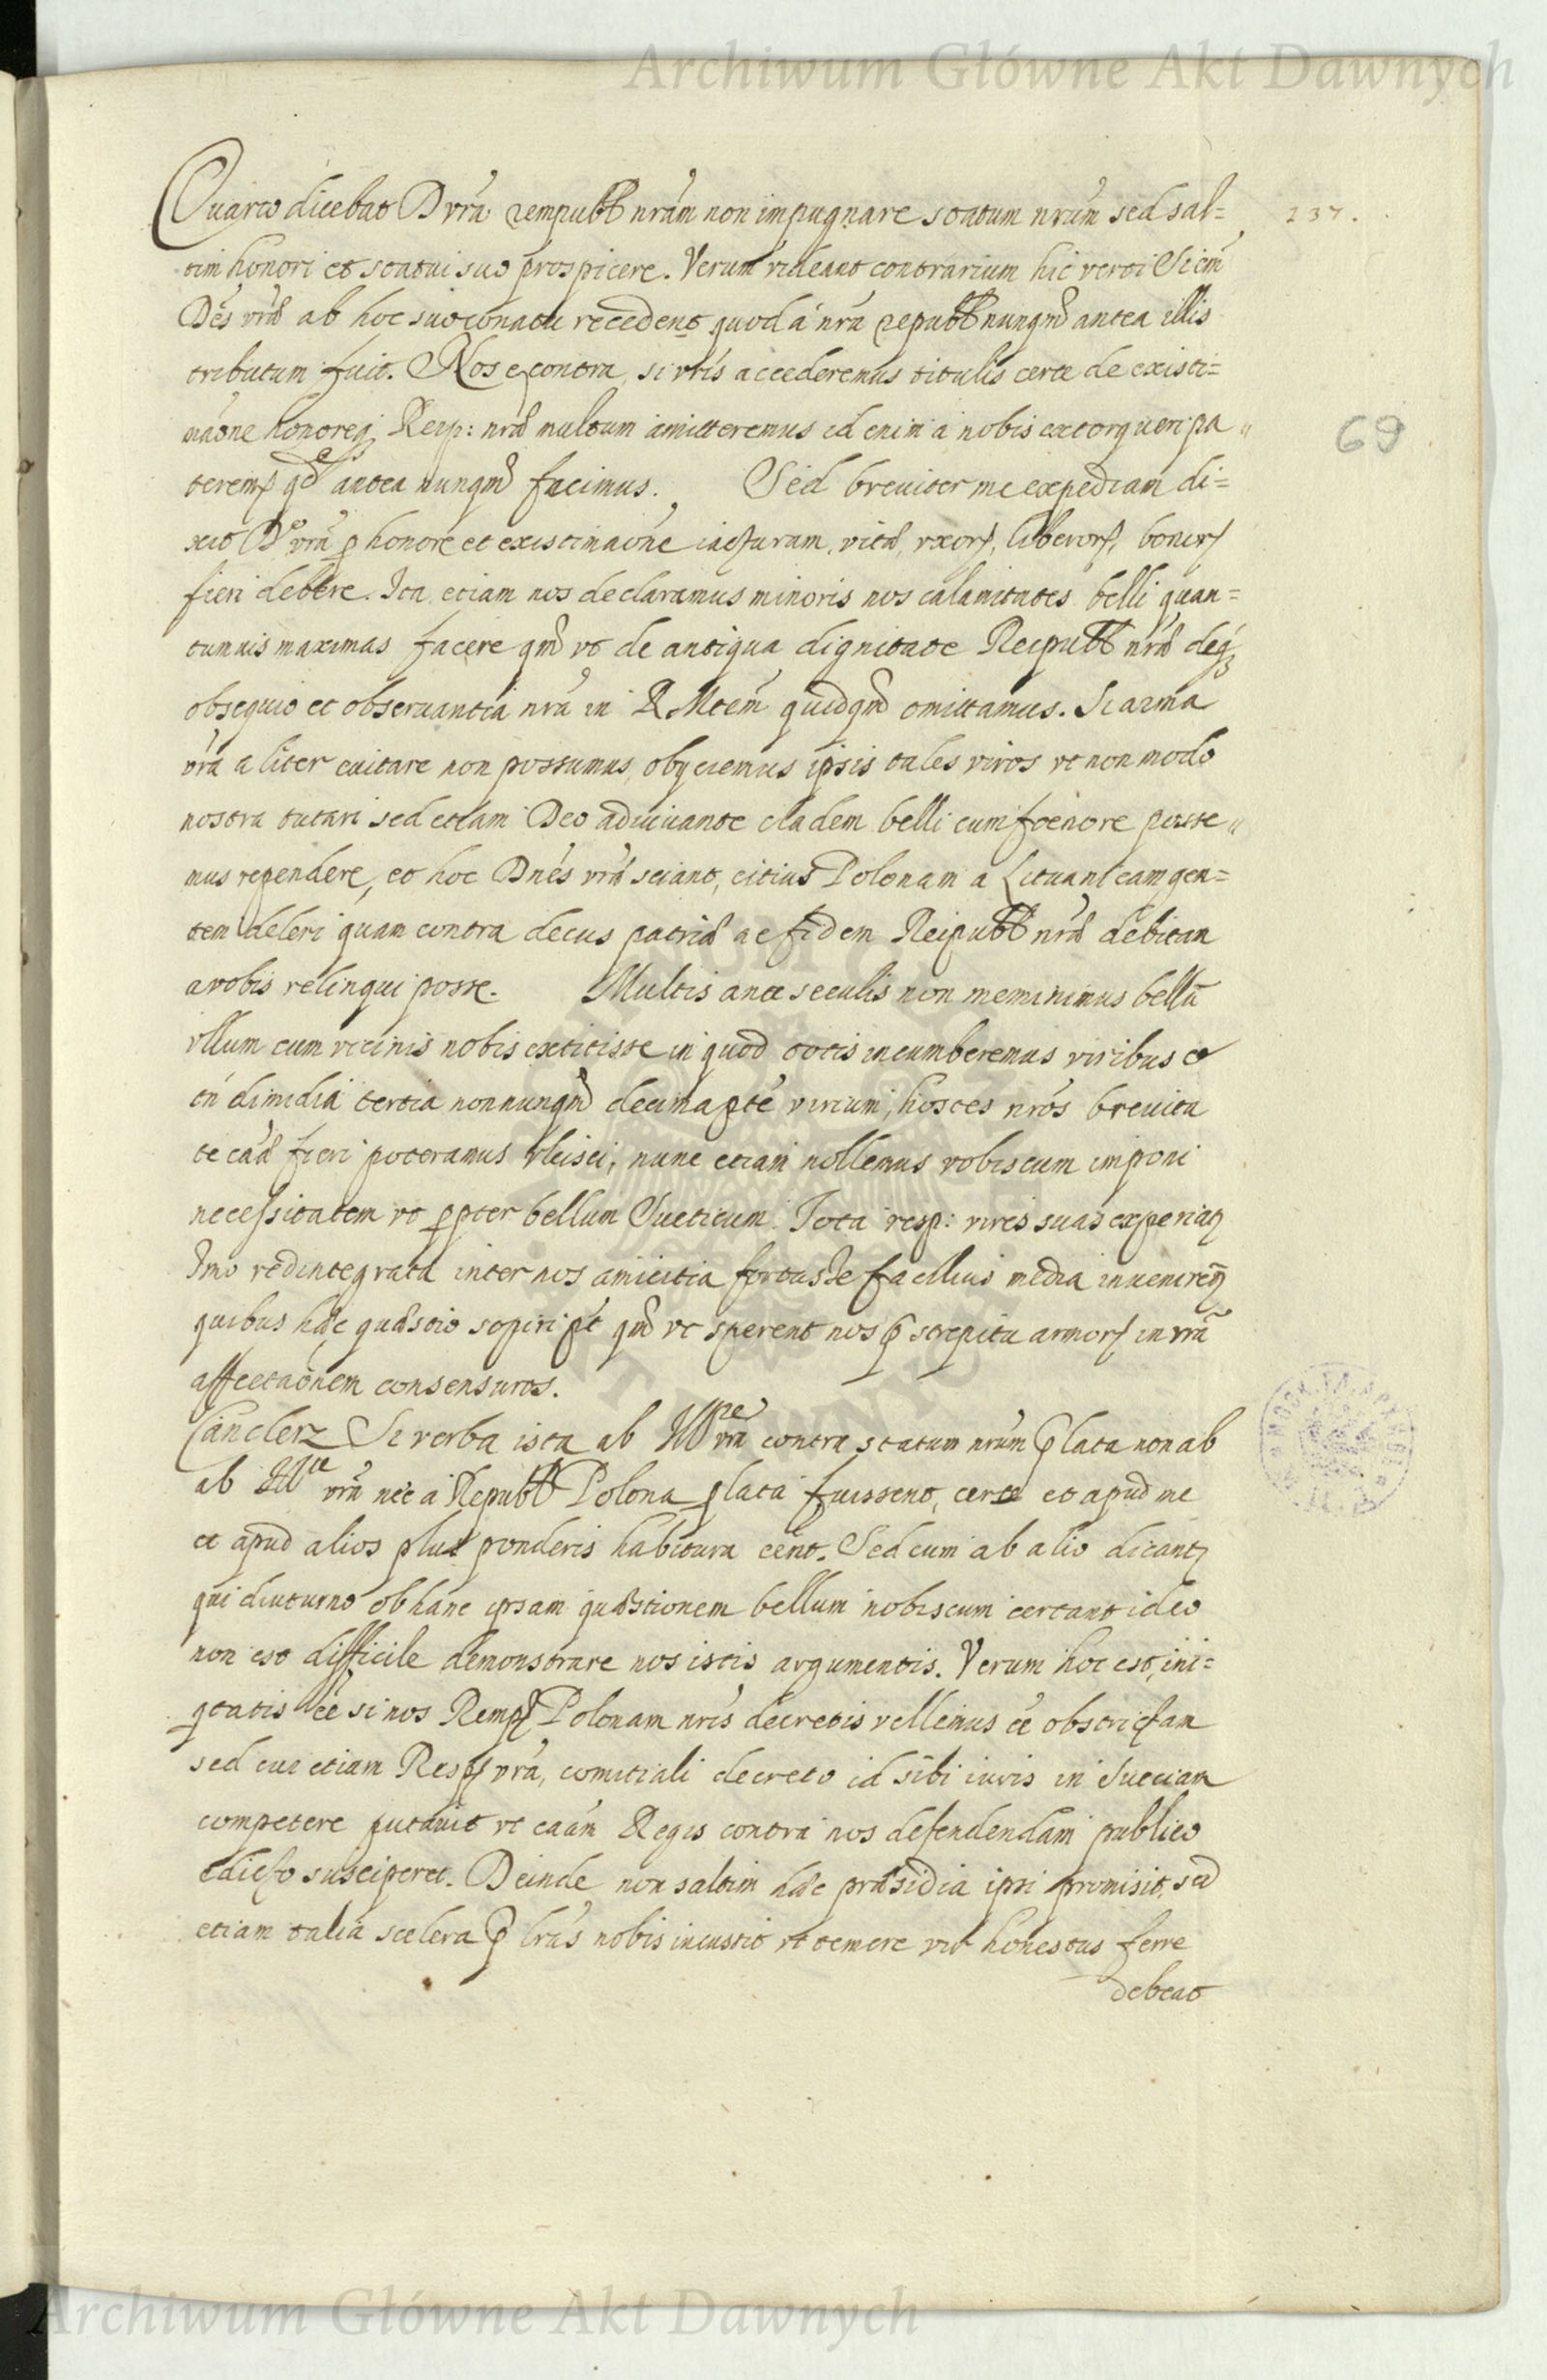 Archiwum Główne Akt Dawnych
237.
69
Quarto dicebat D vrã rempubl nrãm non impugnare statum nrũm sed sal=
tim honori et statui suo prospicere. Verum videant contrarium hic verti Si em̃
Dẽs vrã ab hoc suo conatu recedent quod a nrã republ nunqm̃ antea illis
tributum fuit. Nos e contra, si vrĩs accederemus titulis certe de existi=
mãone honoreq Resp: nrã multum amitteremus id enim a nobis extorqueri pa"
teremꝰ qd antea nunqm̃ fecimus. Sed breuiter me expediam di=
xit D vrã ꝓ honore et existimãone iacturam, vitæ, vxorꝝ, liberorꝝ, bonorꝝ
fieri debere. Ita etiam nos declaramus minoris nos calamitates belli quan=
tumuis maximas facere qm̃ vt de antiqua dignitate Reipubl nræ deqꝫ
obsequio et obseruantia nrã in R. Mtem quidqm̃ omittamus. Si arma
vrã aliter euitare non possumus, obijciemus ipsis tales viros vt non modo
nostra tutari sed etiam Deo adiuuante cladem belli cum foenore posse"
mus rependere, et hoc Dnẽs vrã sciant, citius Polonam a Lituanicam gen=
tem deleri quam contra decus patriæ ac fidem Reipubl nræ debitam
a vobis relinqui posse. Multis ante seculis non meminimus bellũ
vllum cum vicinis nobis extitisse in quod totis incumberemus viribus et
tñ dimidia tertia nonnunqm̃ decima ꝑte virium, hostes nrõs breuita
te eaã fieri poteramus vlcisci, nunc etiam nollemus vobiscum imponi
necessitatem vt ꝓpter bellum Sueticum Tota resp: vires suas experiatꝫ
Imo redintegrata inter nos amicitia fortasse facilius media inuenirenꝫ
quibus hæc quæstio sopiri pt qm̃ vt sperent nos ꝑ strepitu armorꝝ in vrã
affectaõnem consensuros.
Canclerz Si verba ista ab Mre vrã contra statum nrũm ꝓlata non ab
ab Mte vrã nec a Republ Polona ꝓlata fuissent, certe et apud me
et apud alios plus ponderis habitura eẽnt. Sed cum ab alio dicantꝫ
qui diuturno ob hanc ipsam quæstionem bellum nobiscum certant ideo
non est difficile demonstrare nos istis argumentis. Verum hoc est, ini=
qtatis eẽ si nos Remp Polonam nrĩs decretis vellemus eẽ obstrictam
sed cur etiam Resp vrã, comitiali decreto id sibi iuris in Sueciam
competere putauit vt caãm Regis contra nos defendendam publico
edicto susciperet. Deinde non saltim hæc præsidia ipsi promisit, sed
etiam talia scelera ꝑ lrãs nobis incussit vt temere vir honestus ferre
debeat
Archiwum Główne Akt Dawnych